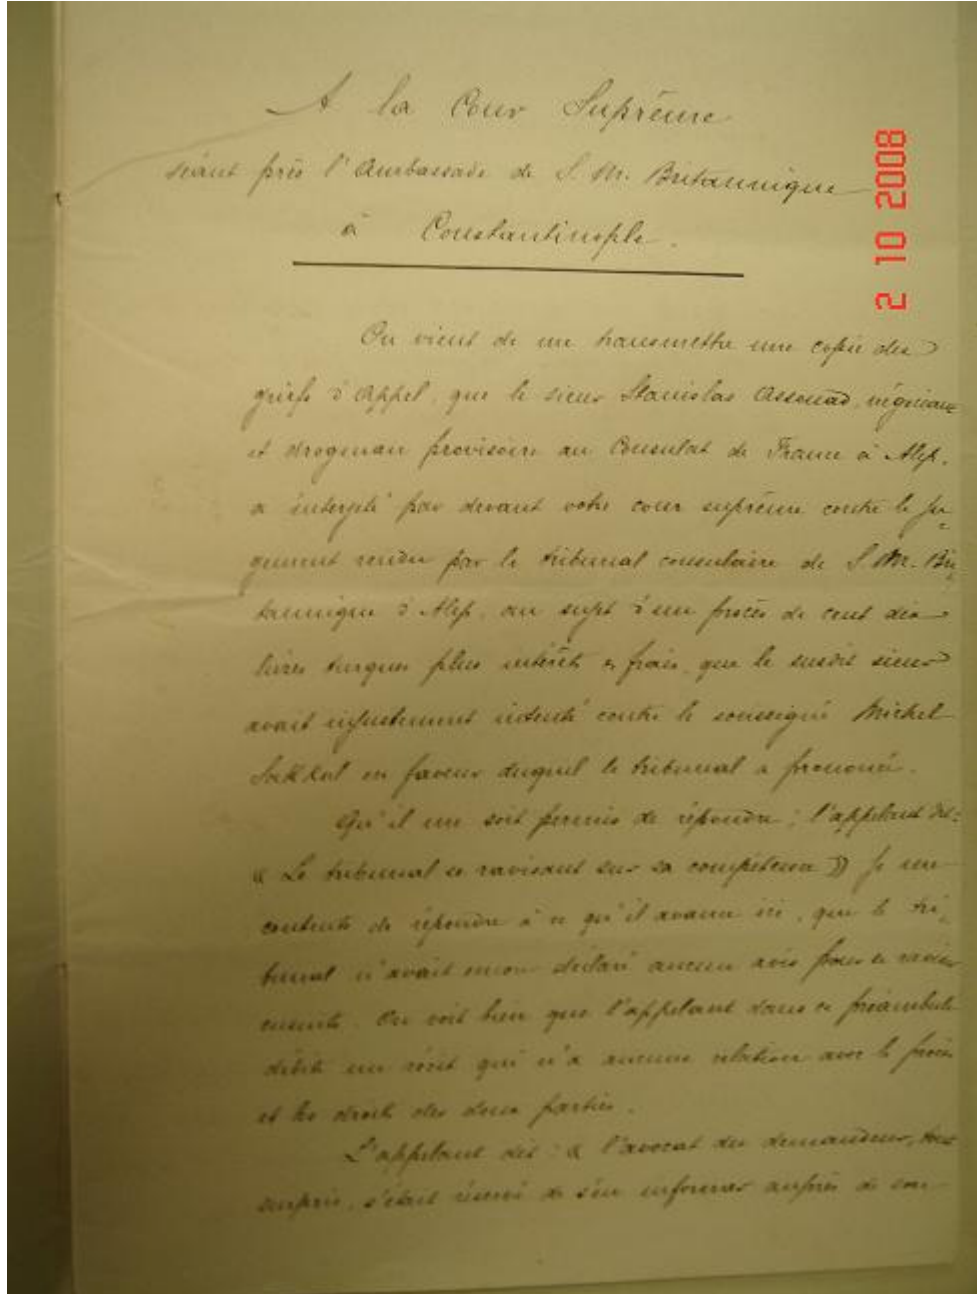 A la Cour Suprême
séant près l'Ambassade de S. M. Britannique
à Constantinople.
2 10 2008
On vient de me transmettre une copie des
griefs d'Appel, que le sieur Stanislas Assouad, négociant
et drogman provisoire au Consulat de France à Alep.
a interjeté par devant votre cour suprême contre le ju=
gement rendu par le tribunal consulaire de S. M. Bri=
tannique d'Alep, au sujet d'un procès de cent dix
livres turques plus intérêts & frais, que le susdit sieur
avait injustement intenté contre le soussigné Michel
en faveur duquel le tribunal a prononcé.
Qu'il me soit permis de répondre ; l'appelant dit :
« Le tribunal se ravisant sur sa compétence » Je me
contente de répondre à ce qu'il avance ici, que le tri=
bunal n'avait encore déclaré aucun avis pour se raviser
ensuite. On voit bien que l'appelant dans ce préambule
débite un récit qui n'a aucune relation avec le procès
et les droits des deux parties.
L'appelant dit : « l'avocat du demandeur, tout
surpris, s'était réservé de s'en informer auprès de son